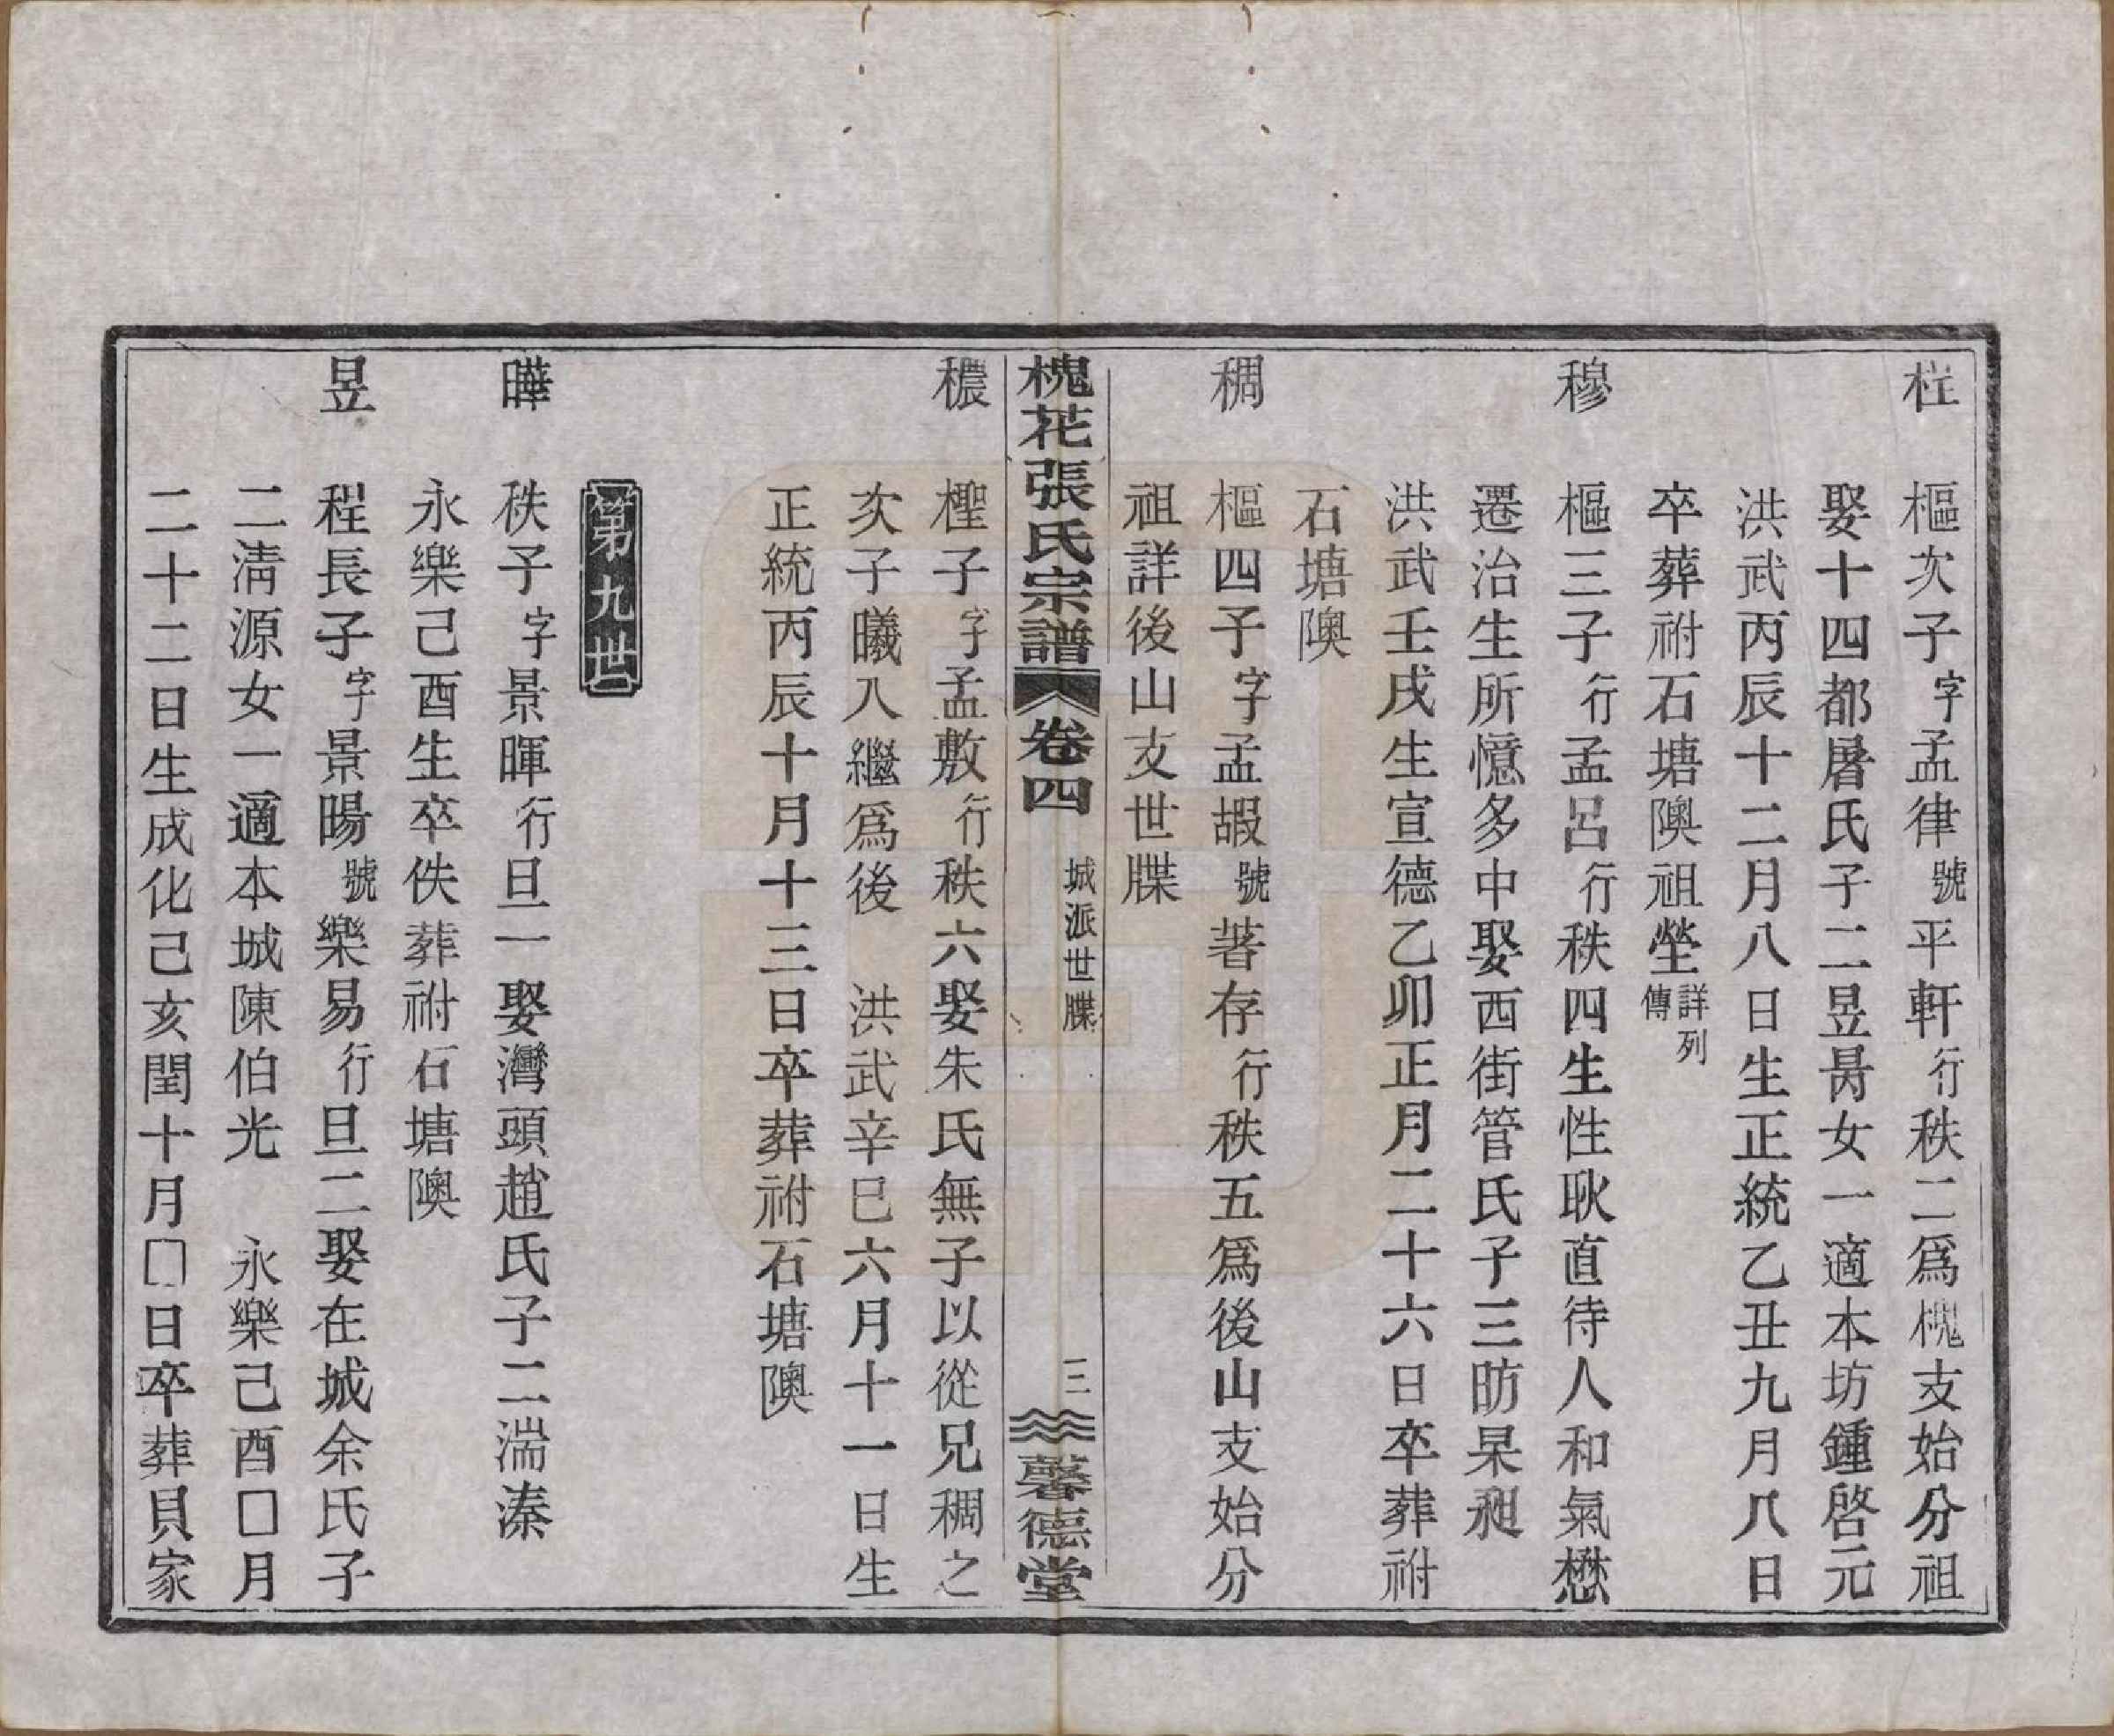 程 樞次子字孟律號平軒行秩二爲槐支始分祖
娶十四都屠氏子二昱昺女一適本坊鍾啓元
洪武丙辰十二月八日生正統乙丑九月八日
卒葬祔石塘隩祖塋詳列傳
穆 樞三子行孟呂行秩四生性耿直待人和氣懋
遷治生所憶多中娶西街管氏子三昉杲昶
洪武壬戌生宣德乙卯正月二十六日卒葬祔
石塘隩
稠 樞四子字孟嘏號著存行秩五爲後山支始分
祖詳後山支世牒
槐花張氏宗譜 卷四 城派世牒 三 馨德堂
穠 檉子字孟敷行秩六娶朱氏無子以從兄稠之
次子曦入繼爲後 洪武辛巳六月十一日生
正統丙辰十月十三日卒葬祔石塘隩
第九世
曄 秩子字景暉行旦一娶灣頭趙氏子二湍溱
永樂己酉生卒佚葬祔石塘隩
昱 程長子字景暘號樂易行旦二娶在城余氏子
二淸源女一適本城陳伯光 永樂己酉□月
二十二日生成化己亥閏十月□日卒葬貝家